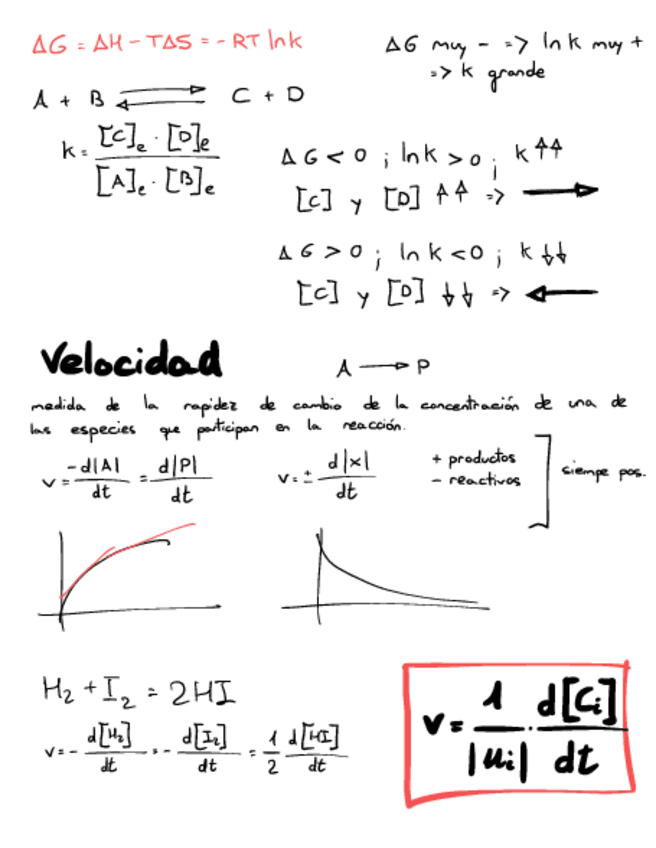 ΔG = ΔH - TΔS = - RT ln k
ΔG muy - => ln k muy +
=> k grande
A + B ⇄ C + D
k = [C]e · [D]e / [A]e · [B]e
ΔG < 0 ; ln k > 0 ; k ↑↑
[C] y [D] ↑↑ => →
ΔG > 0 ; ln k < 0 ; k ↓↓
[C] y [D] ↓↓ => ←
Velocidad
A → P
medida de la rapidez de cambio de la concentración de una de
las especies que participan en la reacción.
v = -d|A|/dt = d|P|/dt
v = ± d|x|/dt
+ productos
- reactivos
siempe pos.
H₂ + I₂ = 2HI
v = - d[H₂]/dt = - d[I₂]/dt = 1/2 d[HI]/dt
v = 1/|ui| · d[Ci]/dt